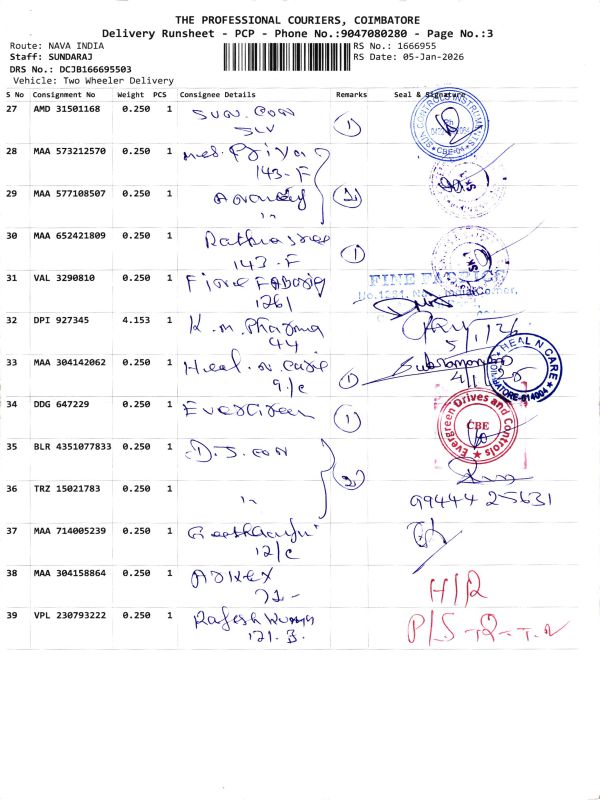 THE PROFESSIONAL COURIERS, COIMBATORE
Delivery Runsheet - PCP - Phone No.:9047080280 - Page No.:3
Route: NAVA INDIA
RS No.: 1666955
Staff: SUNDARAJ
RS Date: 05-Jan-2026
DRS No.: DCJB166695503
Vehicle: Two Wheeler Delivery
S No Consignment No Weight PCS Consignee Details Remarks Seal & Signature
27 AMD 31501168 0.250 1 Sun. Con 1
SLV
28 MAA 573212570 0.250 1 med. Priya
143-F
29 MAA 577108507 0.250 1 2
30 MAA 652421809 0.250 1 1
143-F
31 VAL 3290810 0.250 1 FINE FABRICS
1261
32 DPI 927345 4.153 1 K.m. Pharma
44 5/1/26
33 MAA 304142062 0.250 1 Heal. n. care 1 HEAL N CARE
9/c
34 DDG 647229 0.250 1 Evergreen 1 Evergreen Drives and Controls
CBE
35 BLR 4351077833 0.250 1 D.J. con 2
36 TRZ 15021783 0.250 1 99444 25631
37 MAA 714005239 0.250 1
12/c
38 MAA 304158864 0.250 1 H/R
71-
39 VPL 230793222 0.250 1 Rajesh Kumar P/S
121. B.